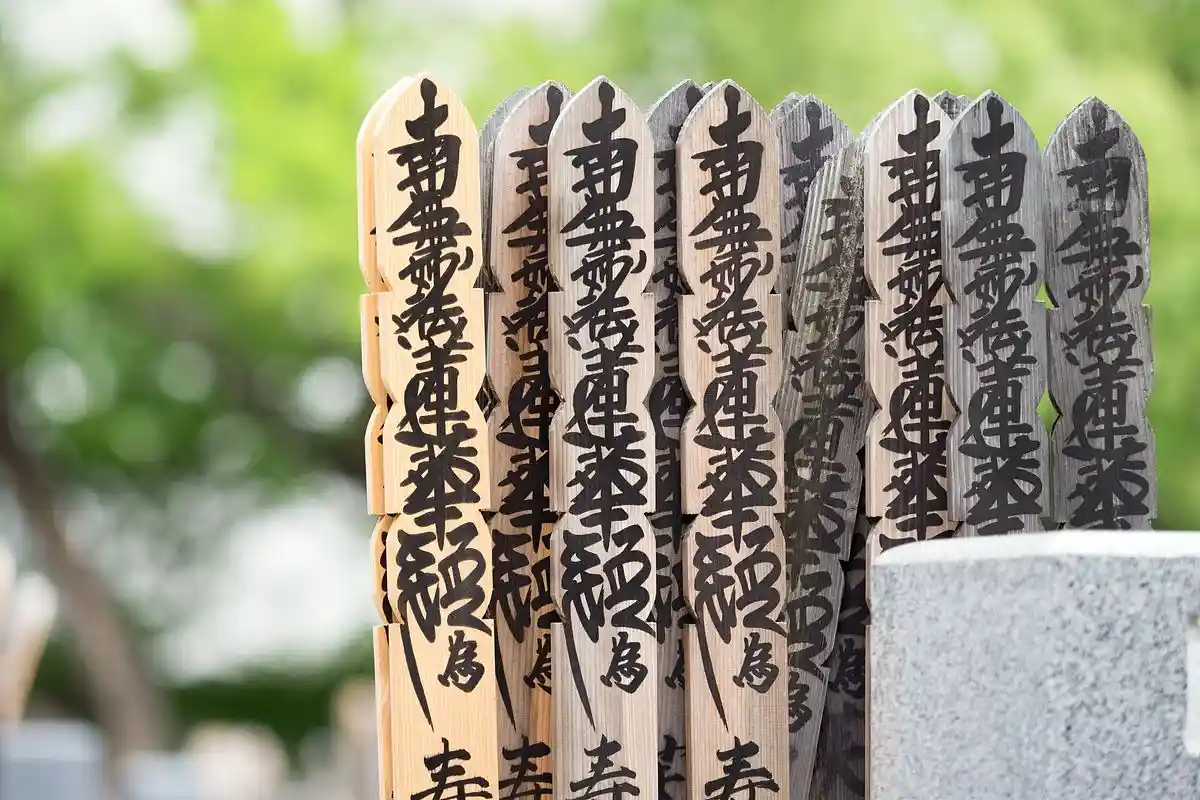 南無妙法蓮華経為寿
南無妙法蓮華経為寿
南無妙法蓮華経為寿
南無妙法蓮華経為寿
南無妙法蓮華
南無妙法蓮華
南無妙法蓮華